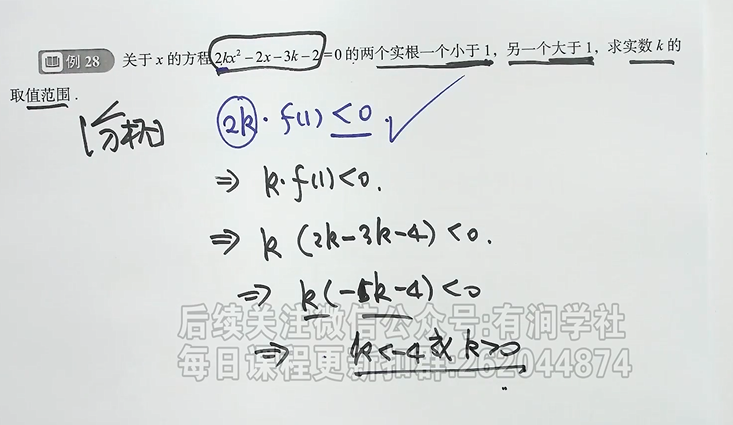 例 28 关于 x 的方程 2kx² - 2x - 3k - 2 = 0 的两个实根一个小于 1，另一个大于 1，求实数 k 的
取值范围．
[分析]
2k · f(1) < 0 . ✓
⇒ k · f(1) < 0.
⇒ k (2k - 3k - 4) < 0.
⇒ k (-k - 4) < 0
后续关注微信公众号:有润学社
⇒ k < -4 或 k > 0
每日课程更新扣群:262044874